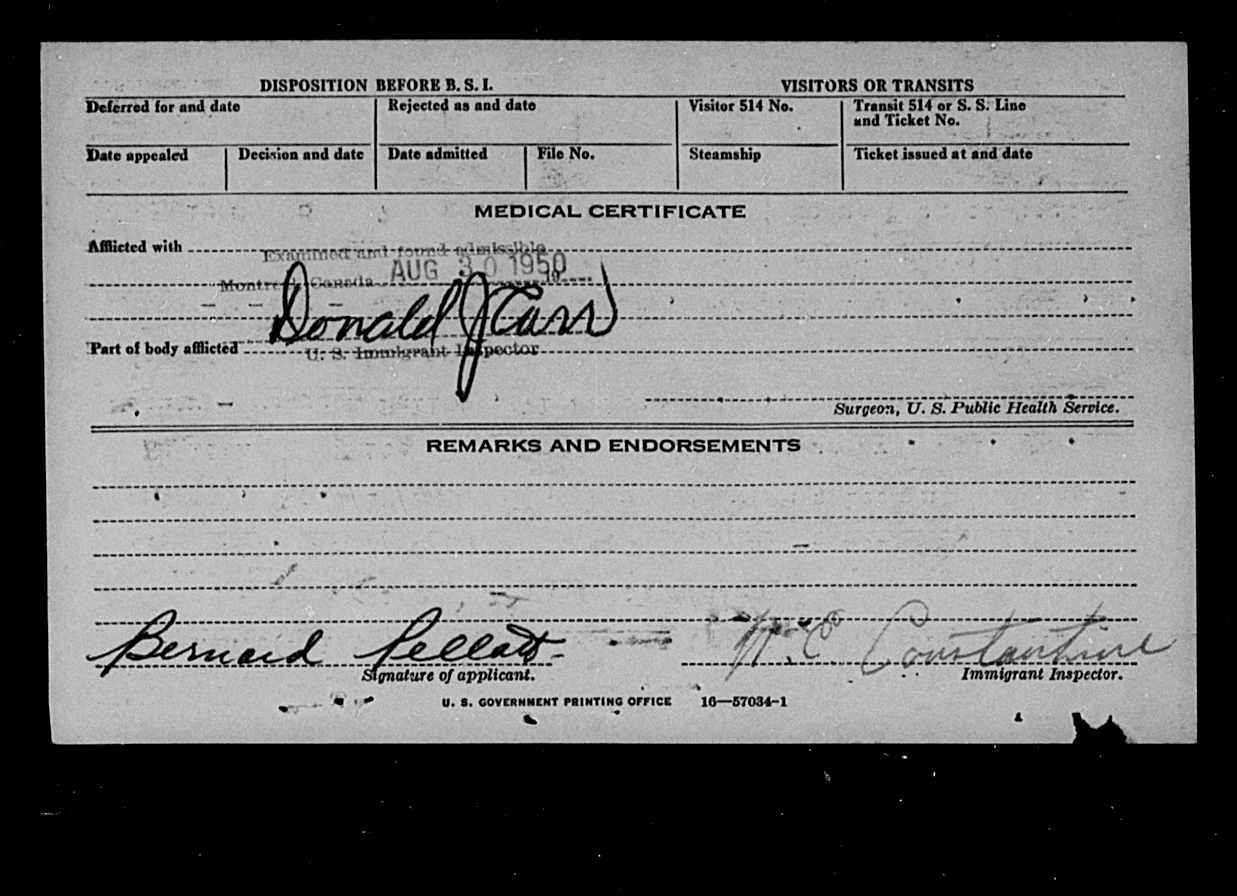 DISPOSITION BEFORE B. S. I.
VISITORS OR TRANSITS
Deferred for and date
Rejected as and date
Visitor 514 No.
Transit 514 or S. S. Line
and Ticket No.
Date appealed
Decision and date
Date admitted
File No.
Steamship
Ticket issued at and date
MEDICAL CERTIFICATE
Afflicted with
Examined and found admissible
Montreal Canada AUG 30 1950 19
Donald J Carr
Part of body afflicted
U. S. Immigrant Inspector
Surgeon, U. S. Public Health Service.
REMARKS AND ENDORSEMENTS
Bernard
Constantine
Signature of applicant.
Immigrant Inspector.
U. S. GOVERNMENT PRINTING OFFICE 16—57034-1